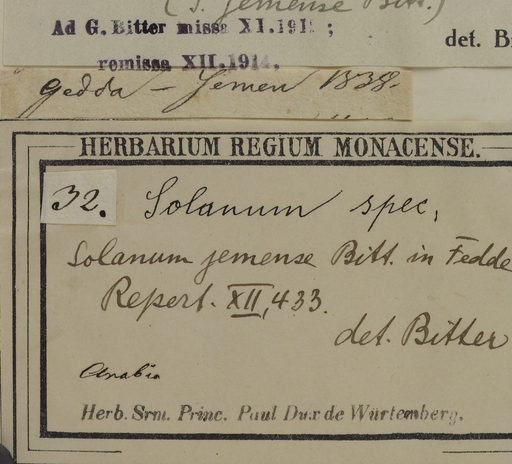 (S. jemense Bitt.)
Ad G. Bitter missa XI.191 ;
det. B
remissa XII.1914.
Gedda — Jemen 1838.
HERBARIUM REGIUM MONACENSE.
32. Solanum spec,
Solanum jemense Bitt. in Fedde
Repert. XII, 433.
det. Bitter
Arabia
Herb. Srm. Princ. Paul Dux de Würtemberg.